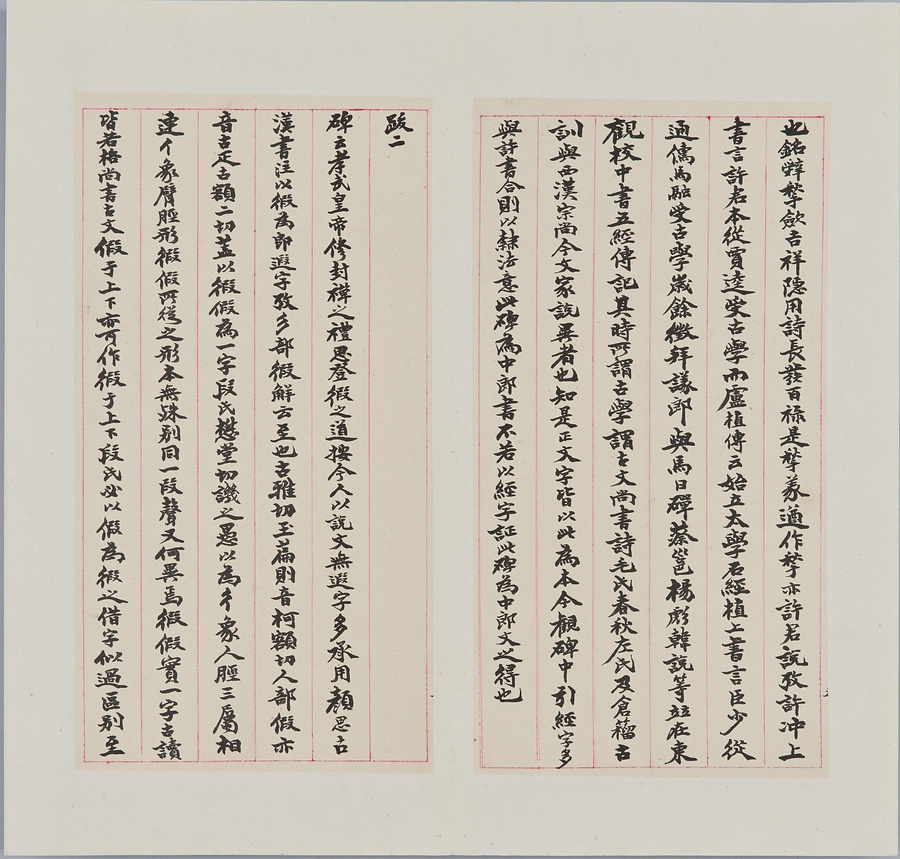 也銘辭揫斂吉祥隱用詩長發百祿是揫義遒作揫亦許君說攷許冲上
書言許君本從賈逵受古學而盧植傳云始立太學石經植上書言臣少從
通儒馬融受古學歲餘徵拜議郎與馬日磾蔡邕楊彪韓說等竝在東
觀校中書五經傳記其時所謂古學謂古文尚書詩毛氏春秋左氏及倉籀古
訓與西漢宗尚今文家說異者也知是正文字皆以此為本今觀碑中引經字多
與許書合則以隸法意此碑為中郎書不若以經字証此碑為中郎文之得也
跋二
碑云孝武皇帝修封禪之禮思登徦之道按今人以說文無遐字多承用顏思古
漢書注以徦為即遐字攷彳部徦解云至也古雅切玉萹則音柯額切人部假亦
音古疋古額二切蓋以徦假為一字段氏懋堂切譏之愚以為彳象人脛三屬相
連亻象臂脛形徦假所從之形本無殊别同一叚聲又何異焉徦假實一字古讀
皆若格尚書古文假于上下亦可作徦于上下段氏必以假為徦之借字似過區别至